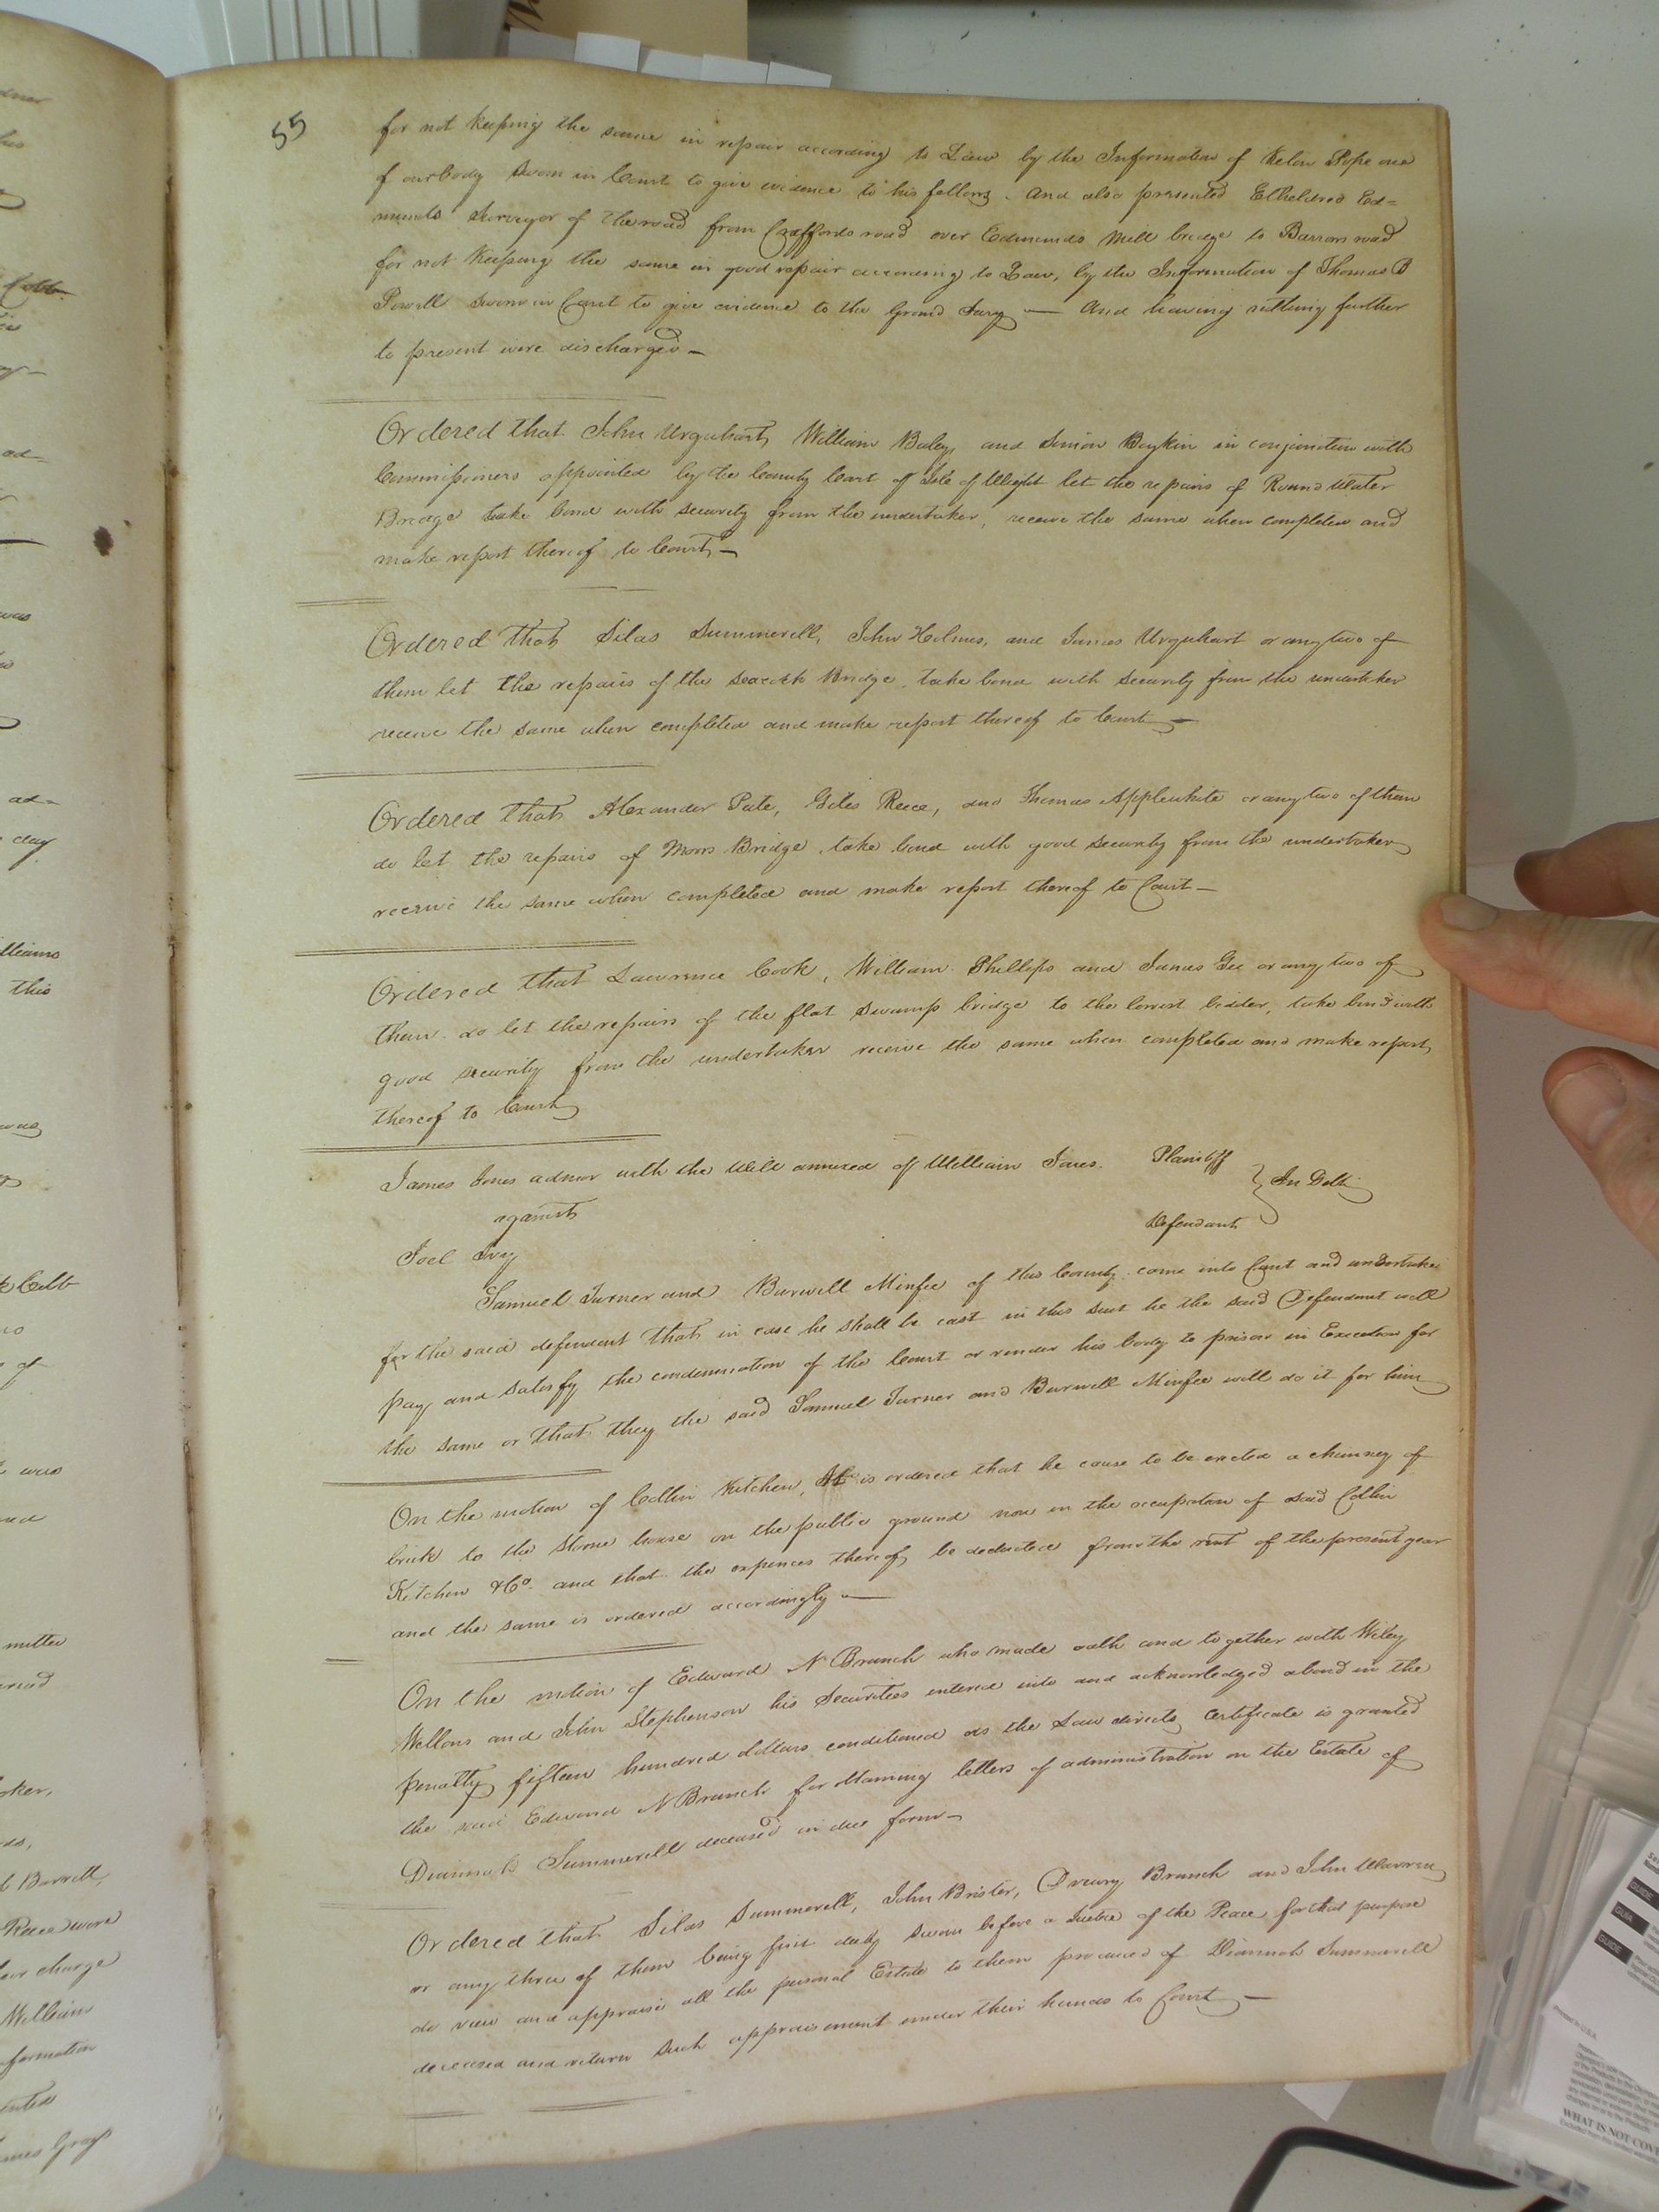 55
for not keeping the same in repair according to Law by the Information of Kelin Pope one
of our body sworn in Court to give evidence to his fellows. And also presented Etheldred Ed=
munds Surveyor of the road from Craffords road over Edmunds Mill bridge to Barrons road
for not keeping the same in good repair according to Law, by the Information of Thomas B
Powell sworn in Court to give evidence to the Grand Jury — And having nothing further
to present were discharged —
Ordered that John Urquhart, William Baley, and Simon Boykin in conjunction with
Commissioners appointed by the County Court of Isle of Wight let the repairs of Round Water
Bridge take bond with security from the undertaker, receive the same when completed and
make report thereof to Court —
Ordered that Silas Summerell, John Holmes, and James Urquhart or any two of
them let the repairs of the Seacock Bridge, take bond with security from the undertaker
receive the same when completed and make report thereof to Court —
Ordered that Alexander Pate, Giles Reece, and Thomas Applewhite or any two of them
do let the repairs of Moors Bridge, take bond with good security from the undertaker
receive the same when completed and make report thereof to Court —
Ordered that Lawrence Cook, William Phillips and James Gee or any two of
them do let the repairs of the flat Swamp bridge to the lowest bidder, take bond with
good security from the undertaker receive the same when completed and make report
thereof to Court
James Jones admor with the Will annexed of William Jones. Plaintiff
against } In Debt
Defendant
Joel Ivy
Samuel Turner and Burwell Minfee of this County come into Court and undertake
for the said defendant that in case he shall be cast in this suit he the said Defendant will
pay and satisfy the condemnation of the Court or render his body to prison in Execution for
the same or that they the said Samuel Turner and Burwell Minfee will do it for him
On the motion of Collin Kitchen, It is ordered that he cause to be erected a chimney of
brick to the Store house on the public ground now in the occupation of said Collin
Kitchen & Co. and that the expences thereof be deducted from the rent of the present year
and the same is ordered accordingly —
On the motion of Edward N Branch who made oath and together with Wiley
Wellons and John Stephenson his Securities entered into and acknowledged a bond in the
penalty fifteen hundred dollars conditioned as the Law directs, certificate is granted
the said Edward N Branch for obtaining letters of administration on the Estate of
Diannah Summerell deceased in due form —
Ordered that Silas Summerell, John Brister, Drewry Branch and John Warren
or any three of them being first duly sworn before a Justice of the Peace for that purpose
do view and appraise all the personal Estate to them produced of Diannah Summerell
deceased and return such appraisement under their hands to Court —